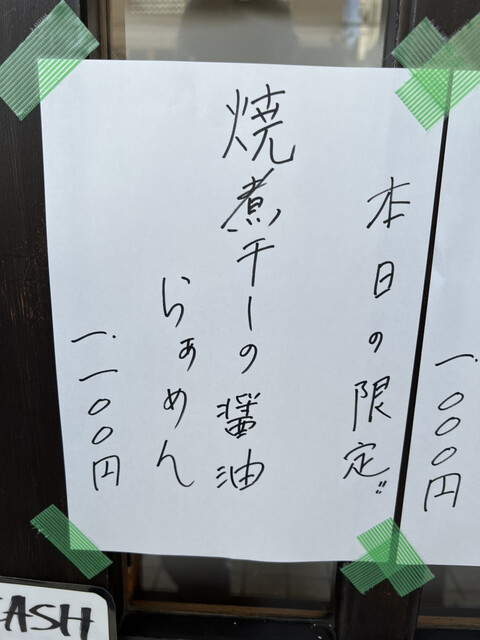 本日の限定"
焼煮干しの醤油
らぁめん
一、一〇〇円
一、〇〇〇円
CASH